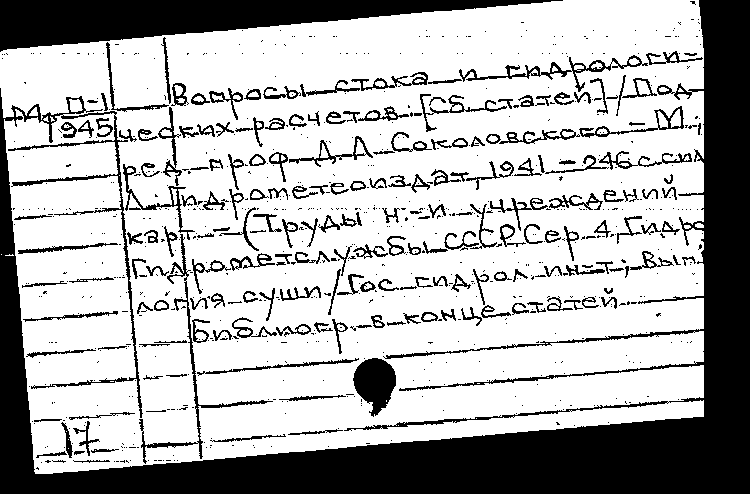 Вопросы стока и гидрологи-
М, П-1
1945 ческих расчетов: [Сб. статей] / Под
ред. проф. Д. Л. Соколовского – М.;
Л.: Гидрометеоиздат, 1941 – 246 с. сил
карт. – (Труды н.-и. учреждений
Гидрометслужбы СССР. Сер. 4, Гидро
логия суши / Гос. гидрол. ин-т; Вып.
Библиогр. в конце статей
17